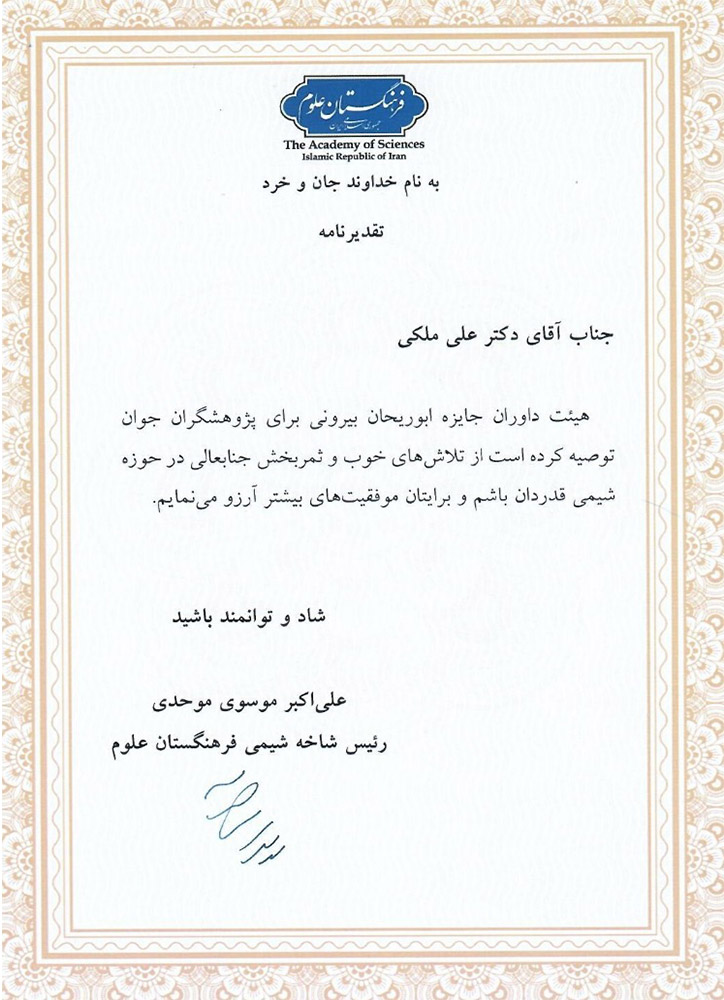 فرهنگستان علوم
جمهوری اسلامی ایران
The Academy of Sciences
Islamic Republic of Iran
به نام خداوند جان و خرد
تقدیرنامه
جناب آقای دکتر علی ملکی
هیئت داوران جایزه ابوریحان بیرونی برای پژوهشگران جوان
توصیه کرده است از تلاش‌های خوب و ثمربخش جنابعالی در حوزه
شیمی قدردان باشم و برایتان موفقیت‌های بیشتر آرزو می‌نمایم.
شاد و توانمند باشید
علی‌اکبر موسوی موحدی
رئیس شاخه شیمی فرهنگستان علوم